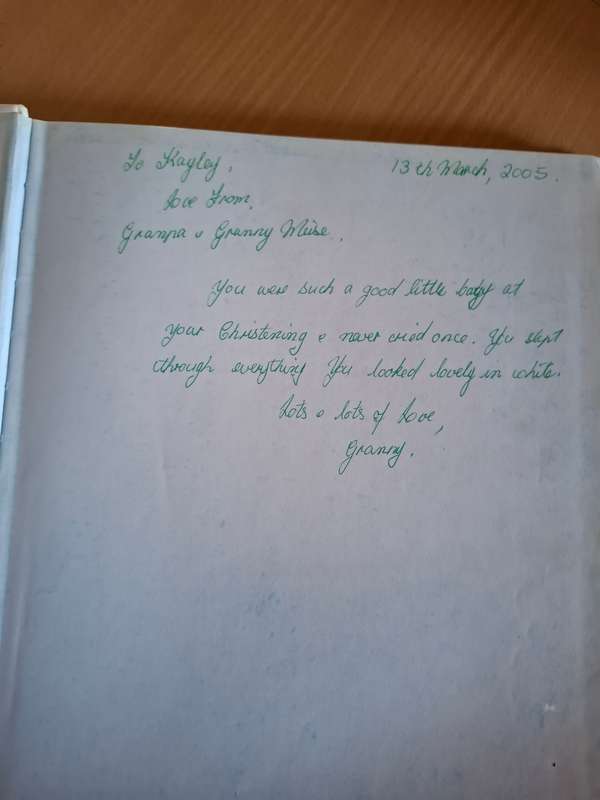 To Kayley, 13th March, 2005.
Love From,
Granpa & Granny
You were such a good little baby at
your Christening & never cried once. You slept
through everything You looked lovely in white.
Lots & lots of love,
Granny.